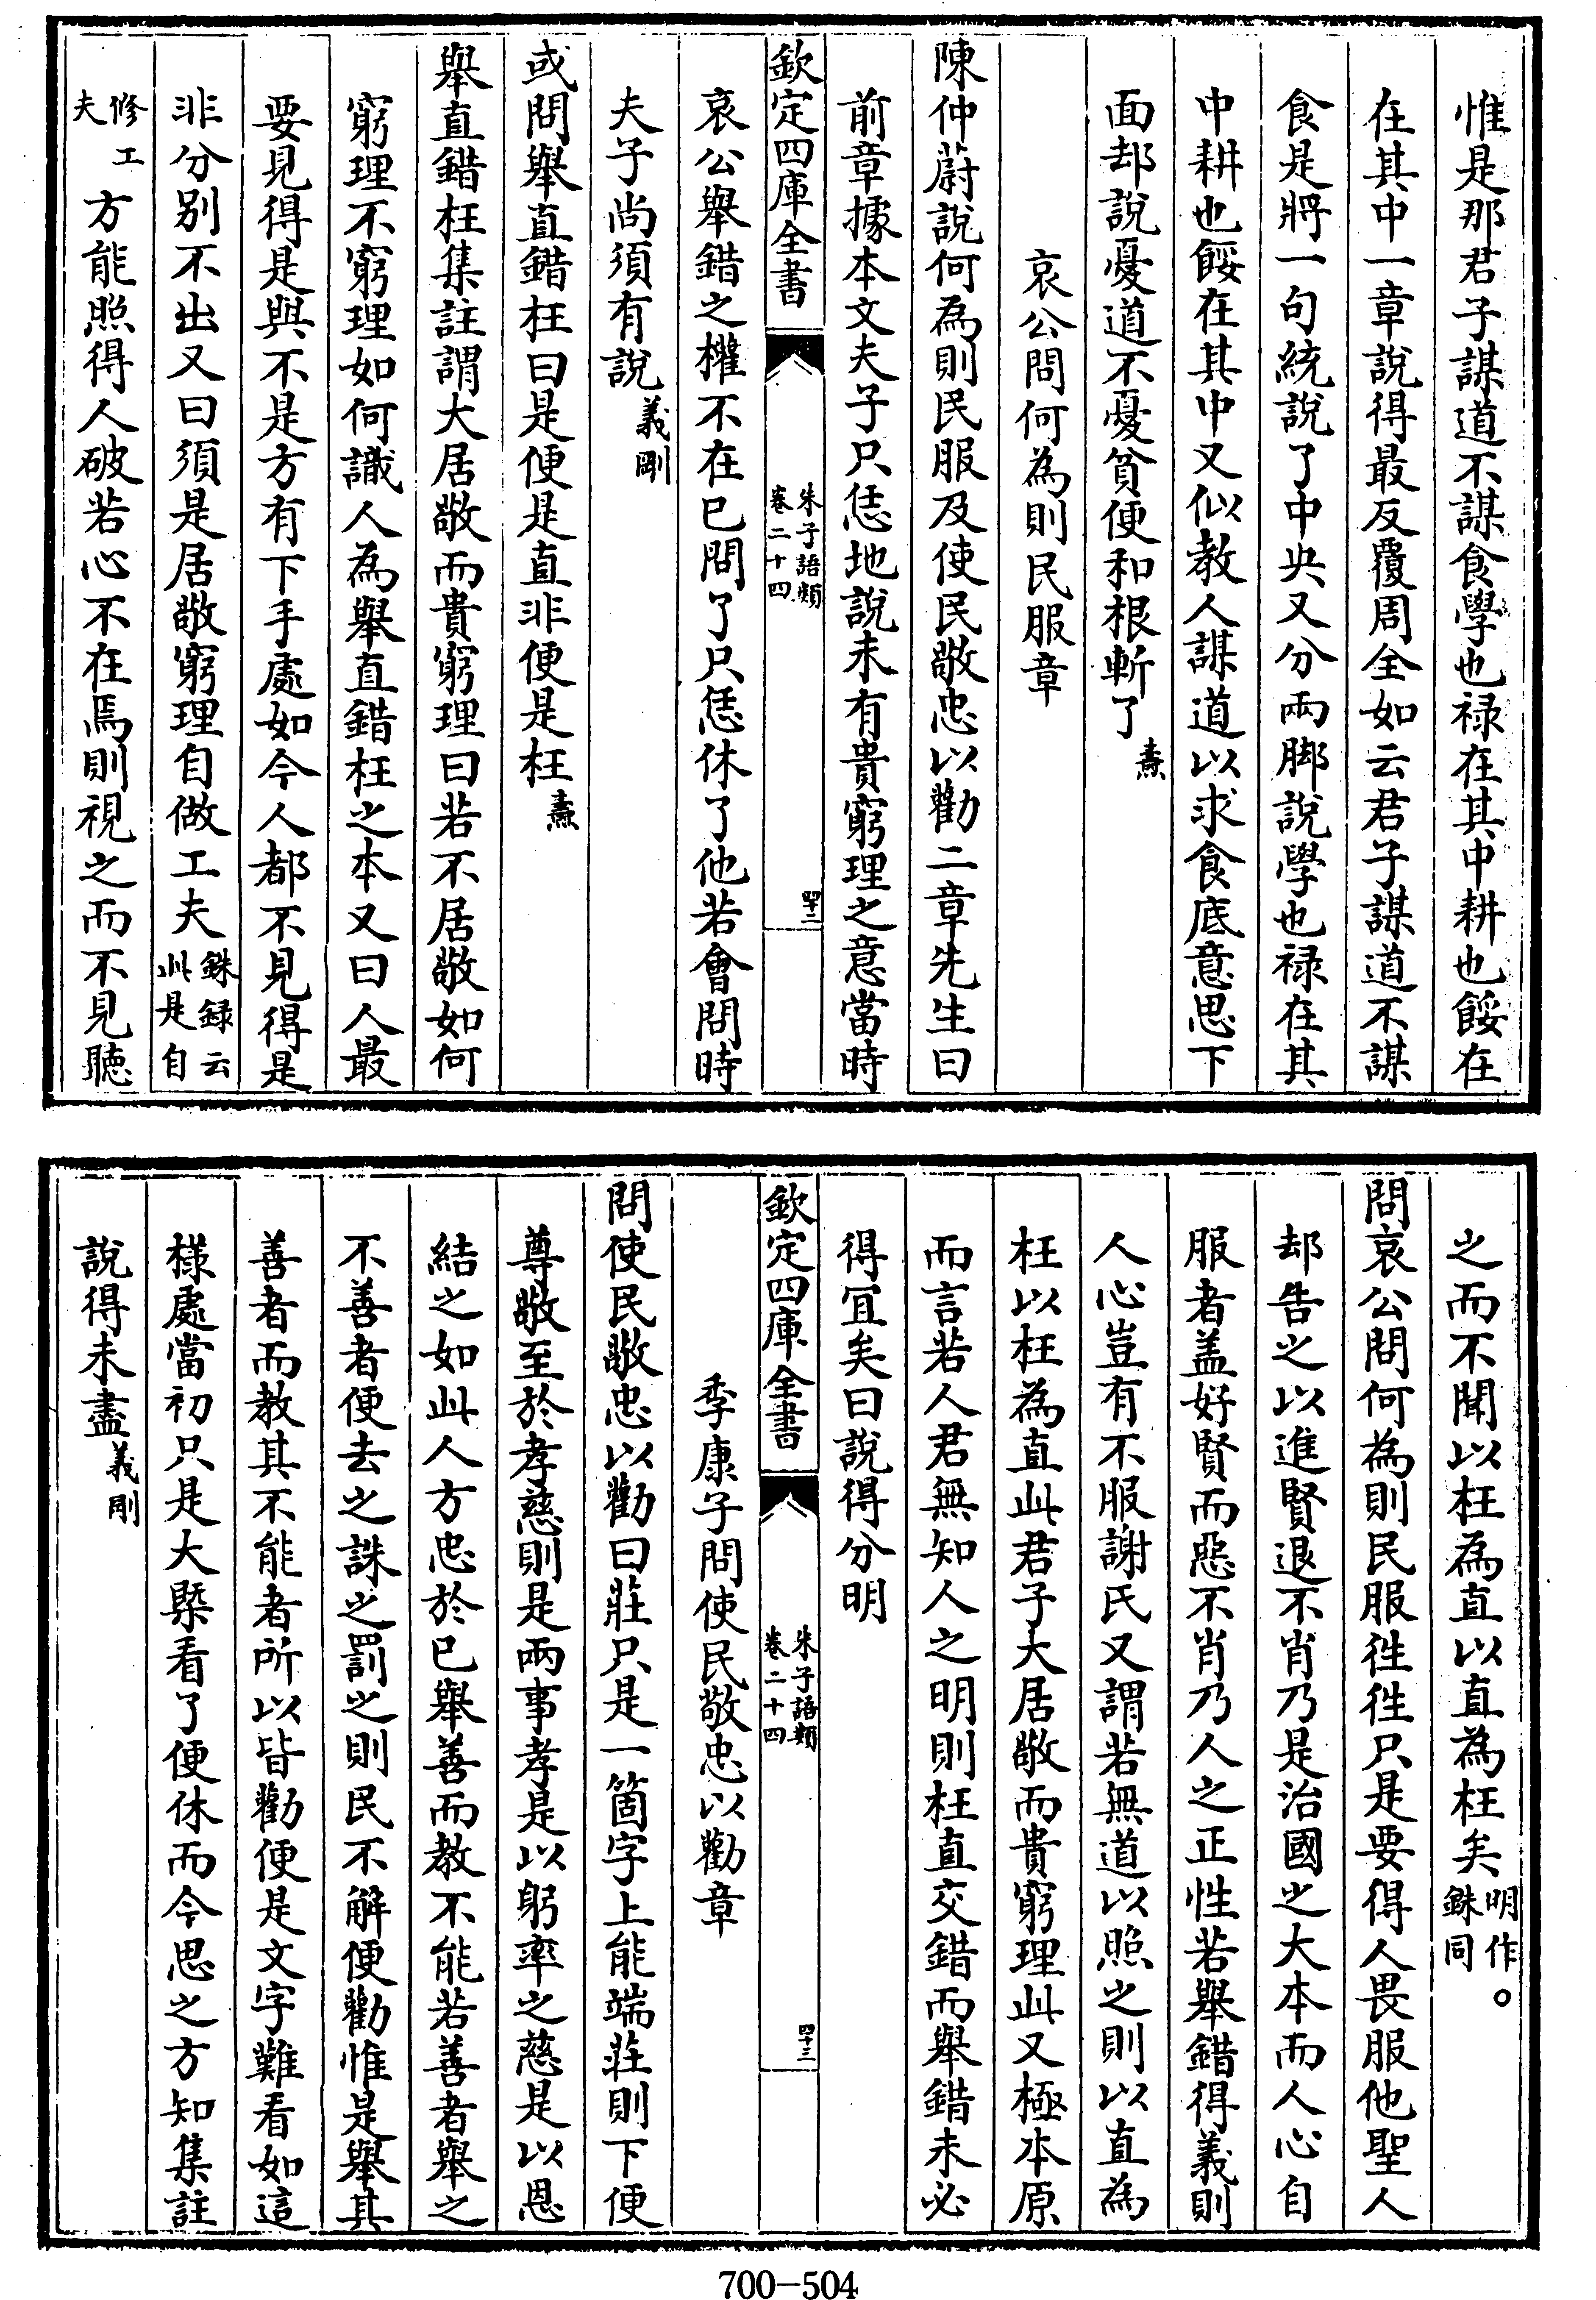 惟是那君子謀道不謀食學也禄在其中耕也餒在
在其中一章說得最反覆周全如云君子謀道不謀
食是將一句統說了中央又分兩脚說學也禄在其
中耕也餒在其中又似教人謀道以求食底意思下
面却說憂道不憂貧便和根斬了 燾
哀公問何為則民服章
陳仲蔚說何為則民服及使民敬忠以勸二章先生曰
前章據本文夫子只恁地說未有貴窮理之意當時
欽定四庫全書 朱子語類 卷二十四 四十二
哀公舉錯之權不在已問了只恁休了他若會問時
夫子尚須有說 義剛
或問舉直錯枉曰是便是直非便是枉 燾
舉直錯枉集註謂大居敬而貴窮理曰若不居敬如何
窮理不窮理如何識人為舉直錯枉之本又曰人最
要見得是與不是方有下手處如今人都不見得是
非分別不出又曰須是居敬窮理自做工夫 銖録云此是自
修工夫 方能照得人破若心不在焉則視之而不見聽
之而不聞以枉為直以直為枉矣 明作。銖同
問哀公問何為則民服徃徃只是要得人畏服他聖人
却告之以進賢退不肖乃是治國之大本而人心自
服者盖好賢而惡不肖乃人之正性若舉錯得義則
人心豈有不服謝氏又謂若無道以照之則以直為
枉以枉為直此君子大居敬而貴窮理此又極本原
而言若人君無知人之明則枉直交錯而舉錯未必
得宜矣曰說得分明
欽定四庫全書 朱子語類 卷二十四 四十三
季康子問使民敬忠以勸章
問使民敬忠以勸曰莊只是一箇字上能端莊則下便
尊敬至於孝慈則是兩事孝是以躬率之慈是以恩
結之如此人方忠於已舉善而教不能若善者舉之
不善者便去之誅之罰之則民不解便勸惟是舉其
善者而教其不能者所以皆勸便是文字難看如這
樣處當初只是大槩看了便休而今思之方知集註
說得未盡 義剛
700-504